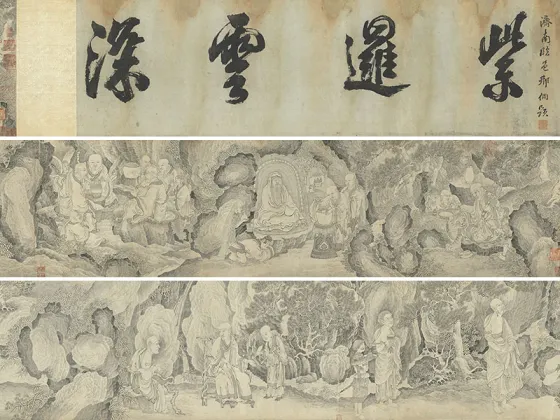 濟南臨邑邢侗題
紫邏雲深